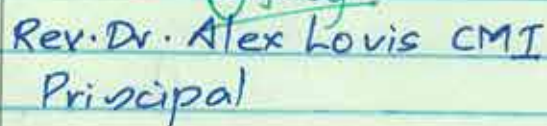 Rev. Dr. Alex Louis CMI
Principal